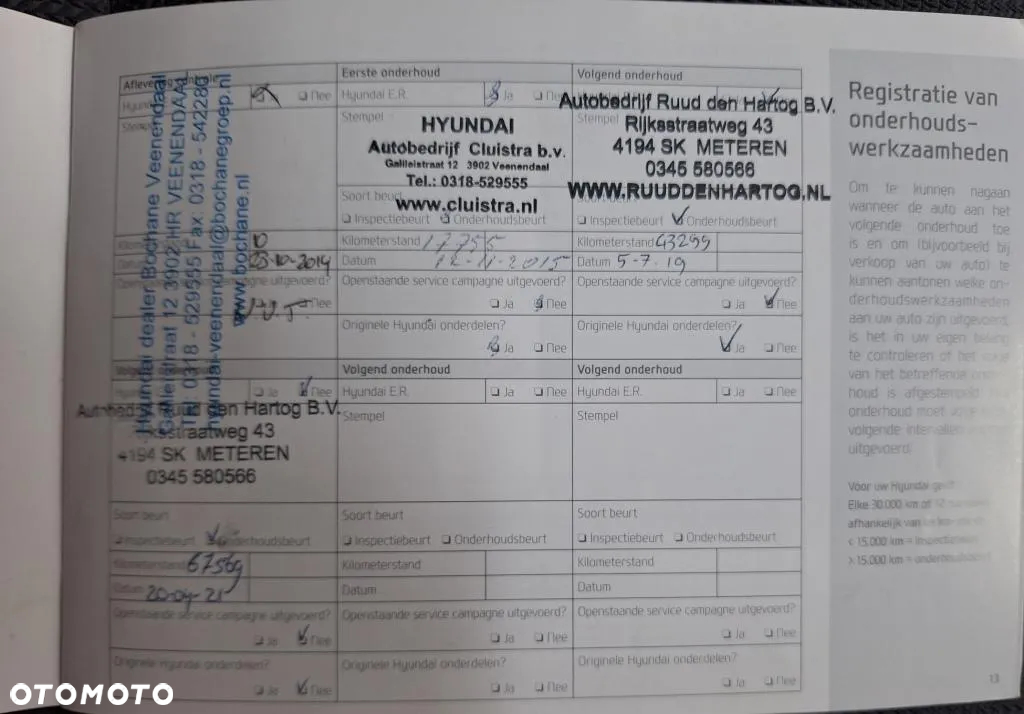 Eerste onderhoud
Hyundai E.R.
Ja
Stempel
HYUNDAI
Autobedrijf Cluistra b.v.
Galileistraat 12 3902 Veenendaal
Tel.: 0318-529555
www.cluistra.nl
Soort beurt
Inspectiebeurt Onderhoudsbeurt
Kilometerstand 17755
Datum 12-11-2015
Openstaande service campagne uitgevoerd?
Ja Nee
Originele Hyundai onderdelen?
Ja Nee
Volgend onderhoud
Autobedrijf Ruud den Hartog B.V.
Stempel
Rijksstraatweg 43
4194 SK METEREN
0345 580566
WWW.RUUDDENHARTOG.NL
Inspectiebeurt Onderhoudsbeurt
Kilometerstand 43299
Datum 5-7-19
Openstaande service campagne uitgevoerd?
Ja Nee
Originele Hyundai onderdelen?
Ja Nee
Nee
Hyundai dealer Bochane Veenendaal
12 3902 HR VEENENDAAL
0318 - 529555 Fax: 0318 - 542280
hyundai-veenendaal@bochanegroep.nl
www.bochane.nl
10
03-10-2014
Nee
Ja Nee
Ruud den Hartog B.V.
4194 SK METEREN
0345 580566
Soort beurt
Inspectiebeurt Onderhoudsbeurt
Kilometerstand 67569
Datum 20-04-21
Openstaande service campagne uitgevoerd?
Ja Nee
Originele Hyundai onderdelen?
Ja Nee
Volgend onderhoud
Hyundai E.R.
Ja Nee
Stempel
Soort beurt
Inspectiebeurt Onderhoudsbeurt
Kilometerstand
Datum
Openstaande service campagne uitgevoerd?
Ja Nee
Originele Hyundai onderdelen?
Ja Nee
Volgend onderhoud
Hyundai E.R.
Ja Nee
Stempel
Soort beurt
Inspectiebeurt Onderhoudsbeurt
Kilometerstand
Datum
Openstaande service campagne uitgevoerd?
Ja Nee
Originele Hyundai onderdelen?
Ja Nee
Registratie van
onderhouds-
werkzaamheden
Om te kunnen nagaan
wanneer de auto aan het
volgende onderhoud toe
is en om (bijvoorbeeld bij
verkoop van uw auto) te
kunnen aantonen welke on-
derhoudswerkzaamheden
aan uw auto zijn uitgevoerd,
is het in uw eigen belang
te controleren of het
van het betreffende
houd is afgestempeld.
onderhoud moet
volgende
uitgevoerd:
Voor uw Hyundai
Elke 30.000 km of
afhankelijk van
< 15.000 km =
> 15.000 km =
13
OTOMOTO